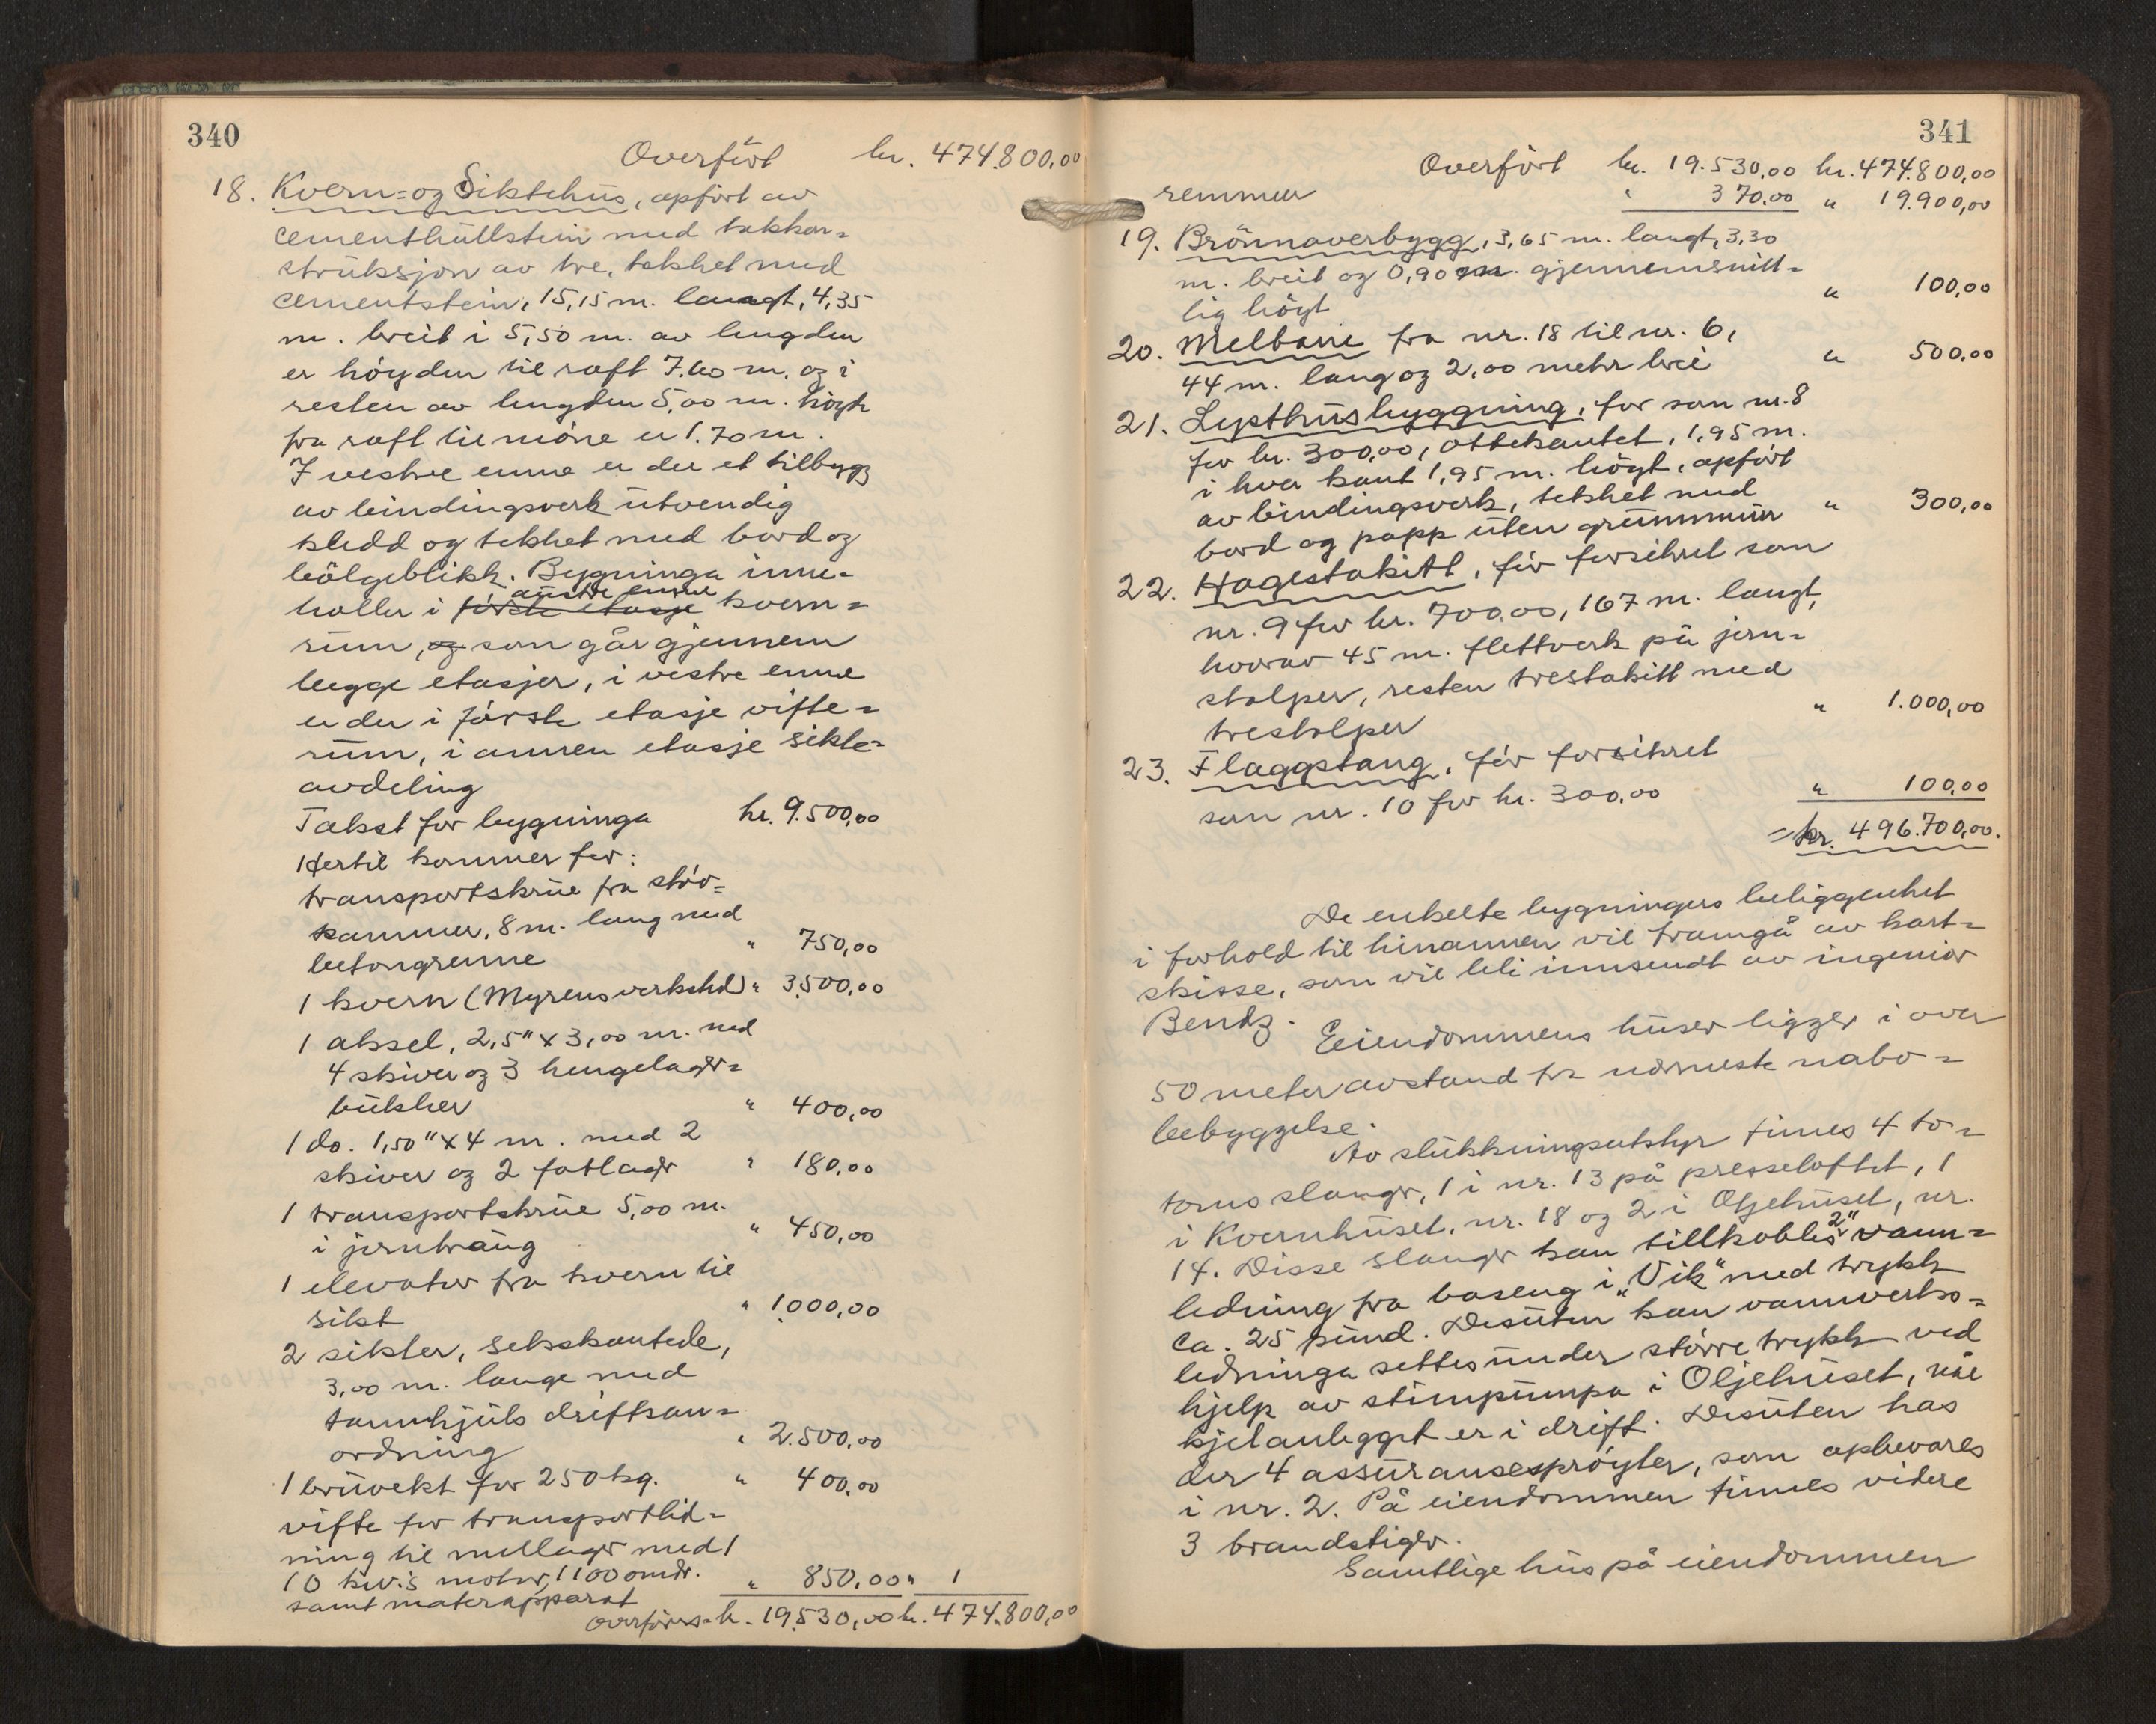 340
Overført kr. 474.800,00
18. Kvern= og Siktehus, opført av
cementhullstein med takkon=
struksjon av tre, tekket med
cementstein, 15,15 m. langt, 4,35
m. breit i 5,50 m. av lengden
er høyden til raft 7.60 m. og i
resten av lengden 5,00 m. høgt
fra raft til møne er 1.70 m.
I vestre enne er der et tilbygg
av bindingsverk utvendig
kledd og tekket med bord og
bølgeblikk. Bygninga inne-
austre enne
holder i første etasje kvern=
rum, og som går gjennem
begge etasjer, i vestre enne
er der i første etasje vifte=
rum, i annen etasje sikte=
avdeling
Takst for bygninga kr. 9.500,00
Hertil kommer for:
transportskrue fra støv=
kammer, 8 m. lang med
betongrenne " 750,00
1 kvern (Myrens verksted) " 3.500,00
1 aksel, 2,5" x 3,00 m. med
4 skiver og 3 hengelager=
bukker " 400,00
1 do. 1,50" x 4 m. med 2
skiver og 2 fotlager " 180,00
1 transportskrue 5,00 m.
i jerntraug " 450,00
1 elevator fra kvern til
sikt " 1.000,00
2 sikter, sekskantede,
3,00 m. lange med
tannhjuls driftsan=
ordning " 2.500,00
1 bruvekt for 250 kg. " 400,00
vifte for transportled=
ning til mellager med 1
10 hk.'s motor, 1100 omdr.
samt materapparat " 850,00 " 1
Overføres kr. 19.530,00 kr. 474.800,00
341
Overført kr. 19.530,00 kr. 474.800,00
remmer " 370,00 " 19.900,00
19. Brønnoverbygg, 3,65 m. langt, 3,30
m. breit og 0,90 m. gjennemsnitt=
lig høgt " 100,00
20. Melbane fra nr. 18 til nr. 6,
44 m. lang og 2,00 meter brei " 500,00
21. Lysthusbyggning, før som nr. 8
for kr. 300,00, ottekantet, 1,95 m.
i hver kant 1,95 m. høgt, opført
av bindingsverk, tekket med
bord og papp uten grunnmur " 300,00
22. Hagestakitt, før forsikret som
nr. 9 for kr. 700,00, 167 m. langt,
hvorav 45 m. flettverk på jern=
stolper, resten trestakitt med
trestolper " 1.000,00
23. Flaggstang, før forsikret
som nr. 10 for kr. 300,00 " 100,00
= kr. 496.700,00.
De enkelte bygningers beliggenhet
i forhold til hinannen vil framgå av kart=
skisse, som vil bli innsendt av ingeniør
Bendz.
Eiendommens huser ligger i over
50 meter avstand fra nærmeste nabo=
bebyggelse.
Av slukkningsutstyr finnes 4 to=
toms slanger, 1 i nr. 13 på presseloftet, 1
i Kvernhuset, nr. 18 og 2 i Oljehuset, nr.
14. Disse slanger kan tillkobles 2" vann=
ledning fra baseng i „Vik" med trykk
ca. 25 pund. Desuten kan vannverks=
ledninga settes under større trykk ved
hjelp av stimpumpa i Oljehuset, når
kjelanlegget er i drift. Desuten has
der 4 assuransesprøyter, som opbevares
i nr. 2. På eiendommen finnes videre
3 brandstiger.
Samtlige hus på eiendommen